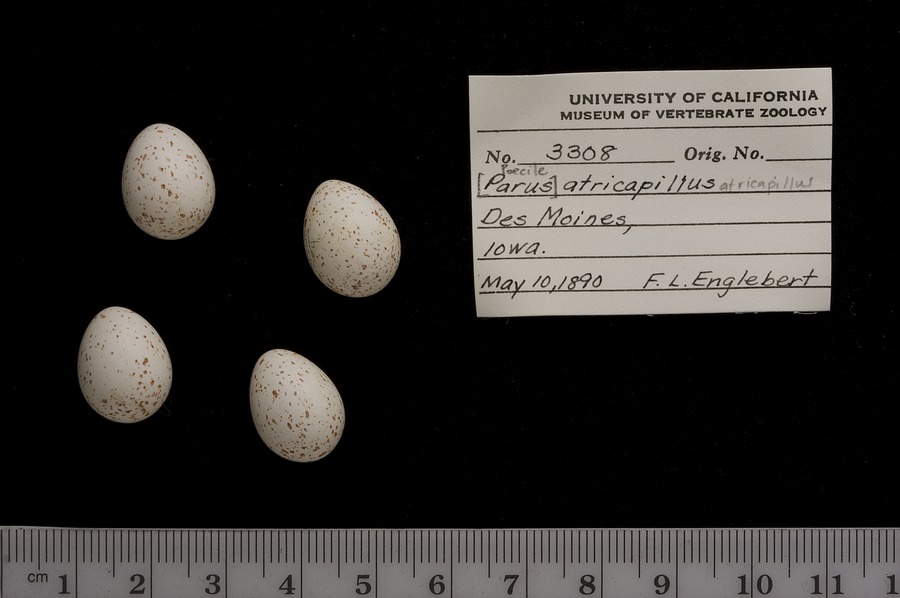 UNIVERSITY OF CALIFORNIA
MUSEUM OF VERTEBRATE ZOOLOGY
No. 3308 Orig. No.
Poecile
[Parus] atricapillus atricapillus
Des Moines,
Iowa.
May 10, 1890 F. L. Englebert
cm 1 2 3 4 5 6 7 8 9 10 11 1